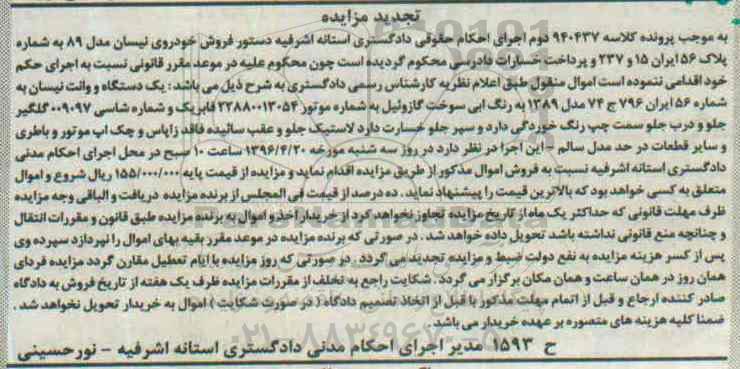 تجدید مزایده
به موجب پرونده کلاسه ۹۴۰۴۳۷ دوم اجرای احکام حقوقی دادگستری استانه اشرفیه دستور فروش خودروی نیسان مدل ۸۹ به شماره
پلاک ۵۶ ایران ۱۵ و ۲۳۷ و پرداخت خسارات دادرسی محکوم گردیده است چون محکوم علیه در موعد مقرر قانونی نسبت به اجرای حکم
خود اقدامی ننموده است اموال منقول طبق اعلام نظریه کارشناس رسمی دادگستری به شرح ذیل می باشد : یک دستگاه و وانت نیسان به
شماره ۵۶ ایران ۷۹۶ ج ۷۴ مدل ۱۳۸۹ به رنگ ابی سوخت گازوئیل به شماره موتور ۲۲۸۸۰۰۱۳۰۵۴ فابریک و شماره شاسی ۰۰۹۰۹۷ گلگیر
جلو و درب جلو سمت چپ رنگ خوردگی دارد و سپر جلو خسارت دارد لاستیک جلو و عقب سائیده فاقد زاپاس و جک اپ موتور و باطری
و سایر قطعات در حد مدل سالم – این اجرا در نظر دارد در روز سه شنبه مورخه ۱۳۹۶/۴/۲۰ ساعت ۱۰ صبح در محل اجرای احکام مدنی
دادگستری استانه اشرفیه نسبت به فروش اموال مذکور از طریق مزایده اقدام نماید و مزایده از قیمت پایه ۱۵۵/۰۰۰/۰۰۰ ریال شروع و اموال
متعلق به کسی خواهد بود که بالاترین قیمت را پیشنهاد نماید . ده درصد از قیمت فی المجلس از برنده مزایده دریافت و الباقی وجه مزایده
ظرف مهلت قانونی که حداکثر یک ماه از تاریخ مزایده تجاوز نخواهد کرد از خریدار اخذ و اموال به برنده مزایده طبق قانون و مقررات انتقال
و چنانچه منع قانونی نداشته باشد تحویل داده خواهد شد . در صورتی که برنده مزایده در موعد مقرر بقیه بهای اموال را نپردازد سپرده وی
پس از کسر هزینه مزایده به نفع دولت ضبط و مزایده تجدید می گردد . در صورتی که روز مزایده با ایام تعطیل مقارن گردد مزایده فردای
همان روز در همان ساعت و همان مکان برگزار می گردد . شکایت راجع به تخلف از مقررات مزایده ظرف یک هفته از تاریخ فروش به دادگاه
صادر کننده ارجاع و قبل از اتمام مهلت مذکور یا قبل از اتخاذ تصمیم دادگاه ( در صورت شکایت ) اموال به خریدار تحویل نخواهد شد .
ضمنا کلیه هزینه های متصوره بر عهده خریدار می باشد
ح ۱۵۹۳ مدیر اجرای احکام مدنی دادگستری استانه اشرفیه – نورحسینی